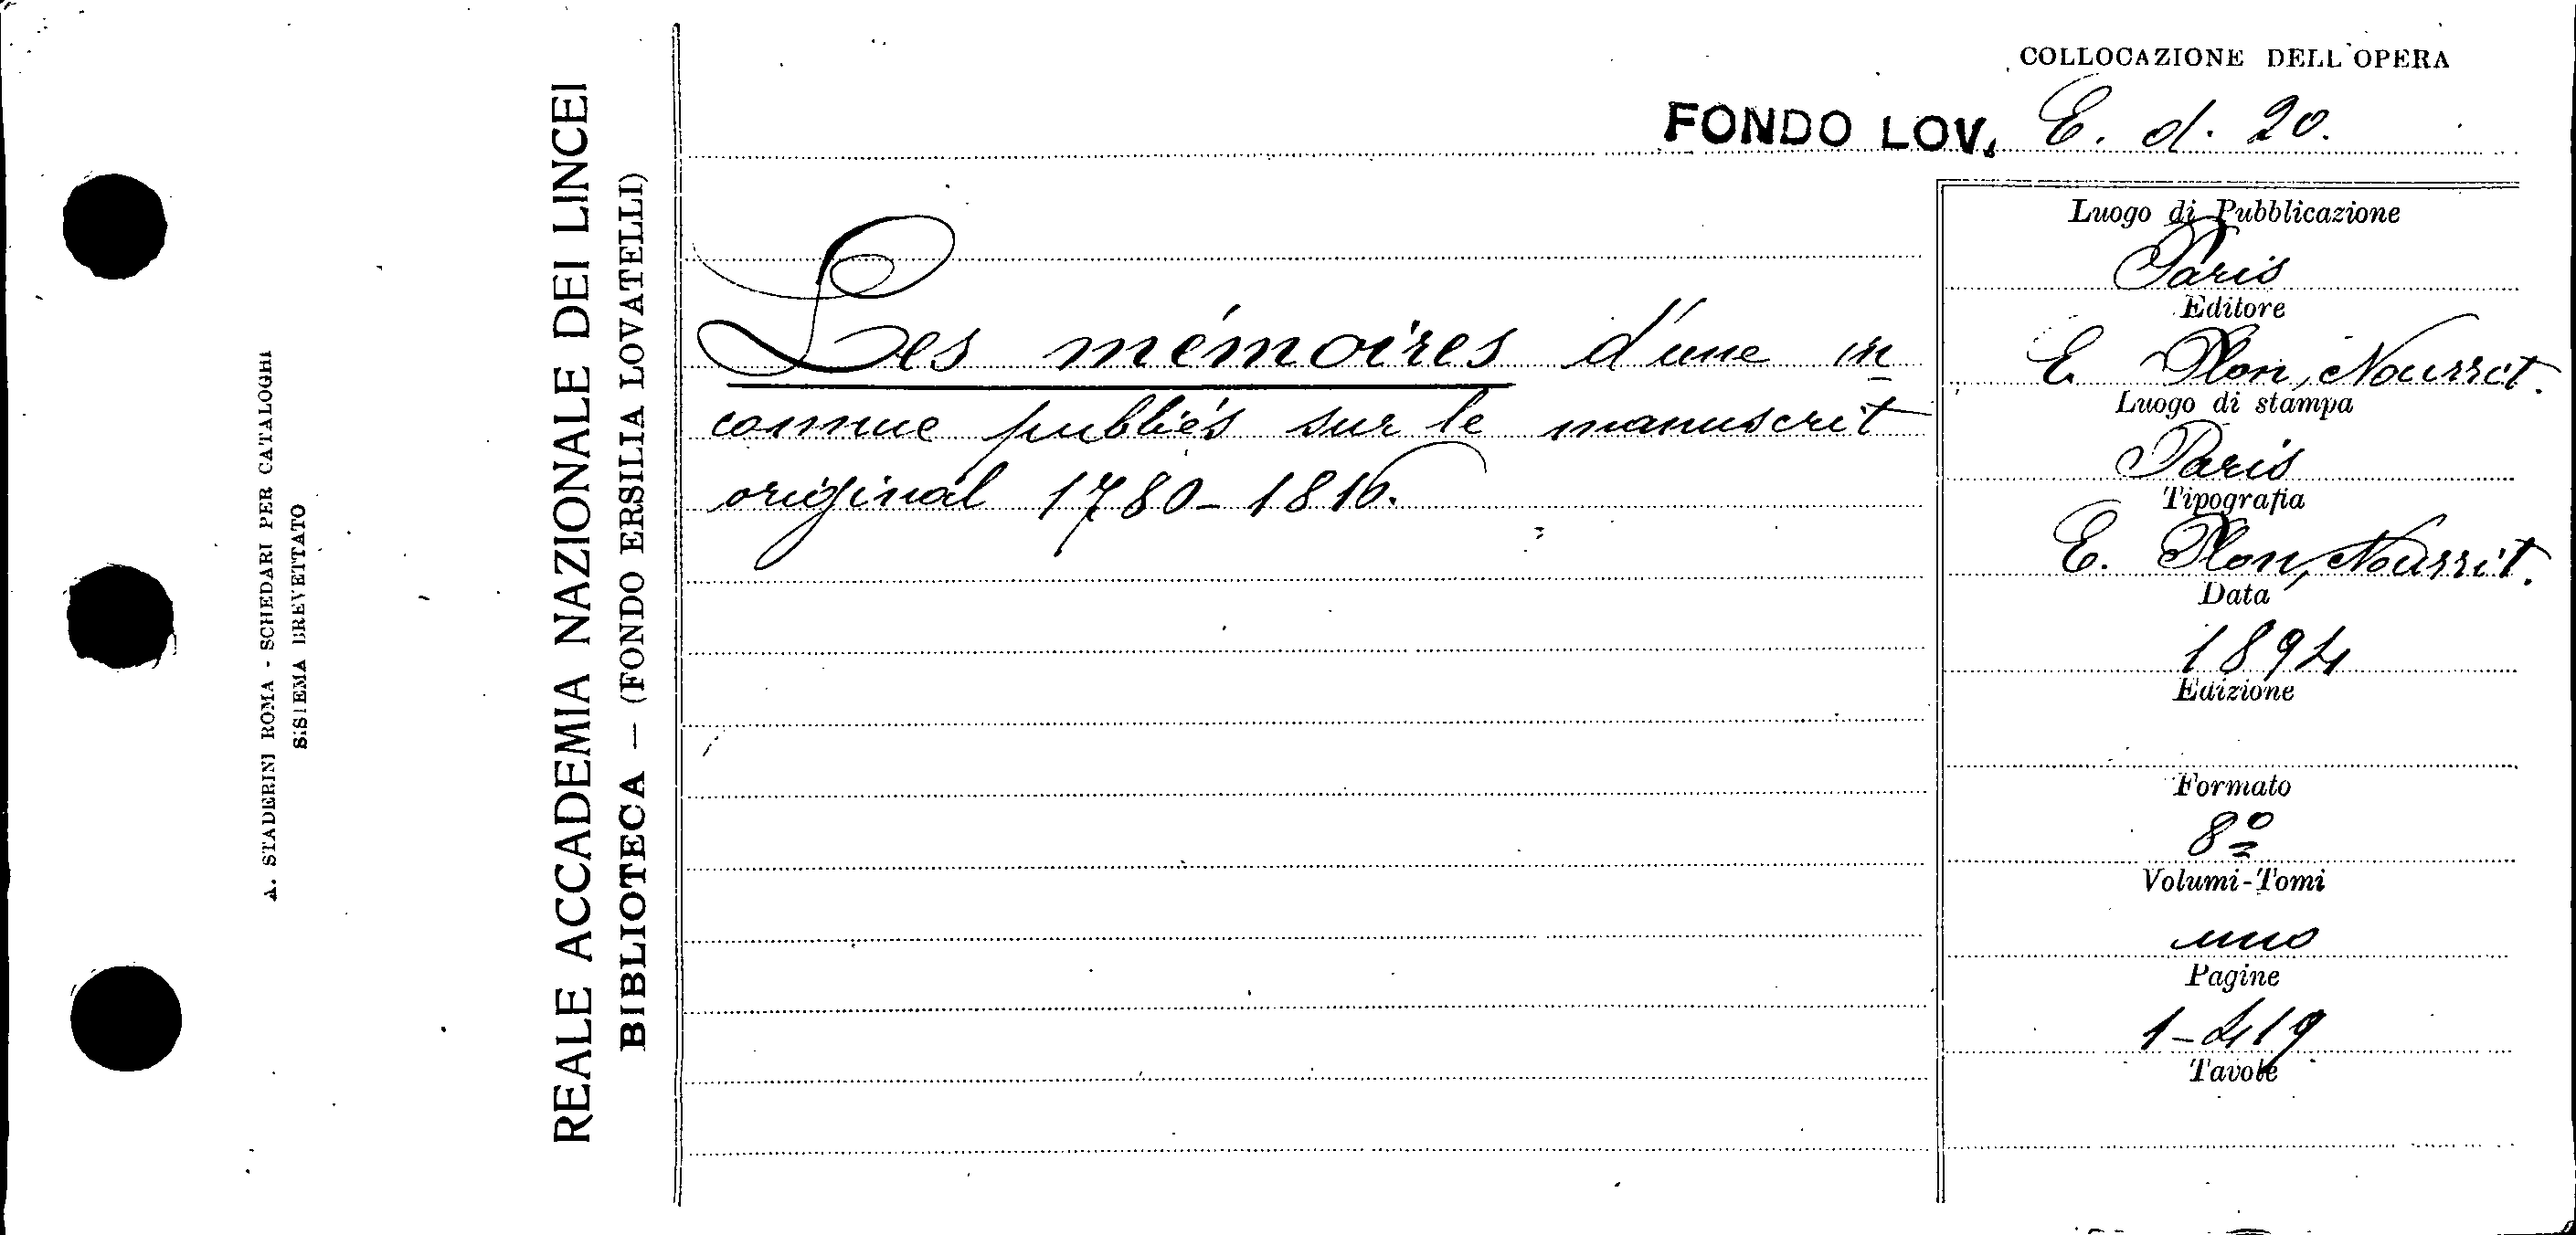 A. STADERINI ROMA - SCHEDARI PER CATALOGHI
SISTEMA BREVETTATO
REALE ACCADEMIA NAZIONALE DEI LINCEI
BIBLIOTECA — (FONDO ERSILIA LOVATELLI)
COLLOCAZIONE DELL'OPERA
FONDO LOV. E. d. 20.
Les mémoires d'une in
connue publiés sur le manuscrit
original 1780-1816.
Luogo di Pubblicazione
Paris
Editore
E. Plon, Nourrit.
Luogo di stampa
Paris
Tipografia
E. Plon, Nourrit.
Data
1894
Edizione
Formato
8º
Volumi-Tomi
uno
Pagine
1-419
Tavole